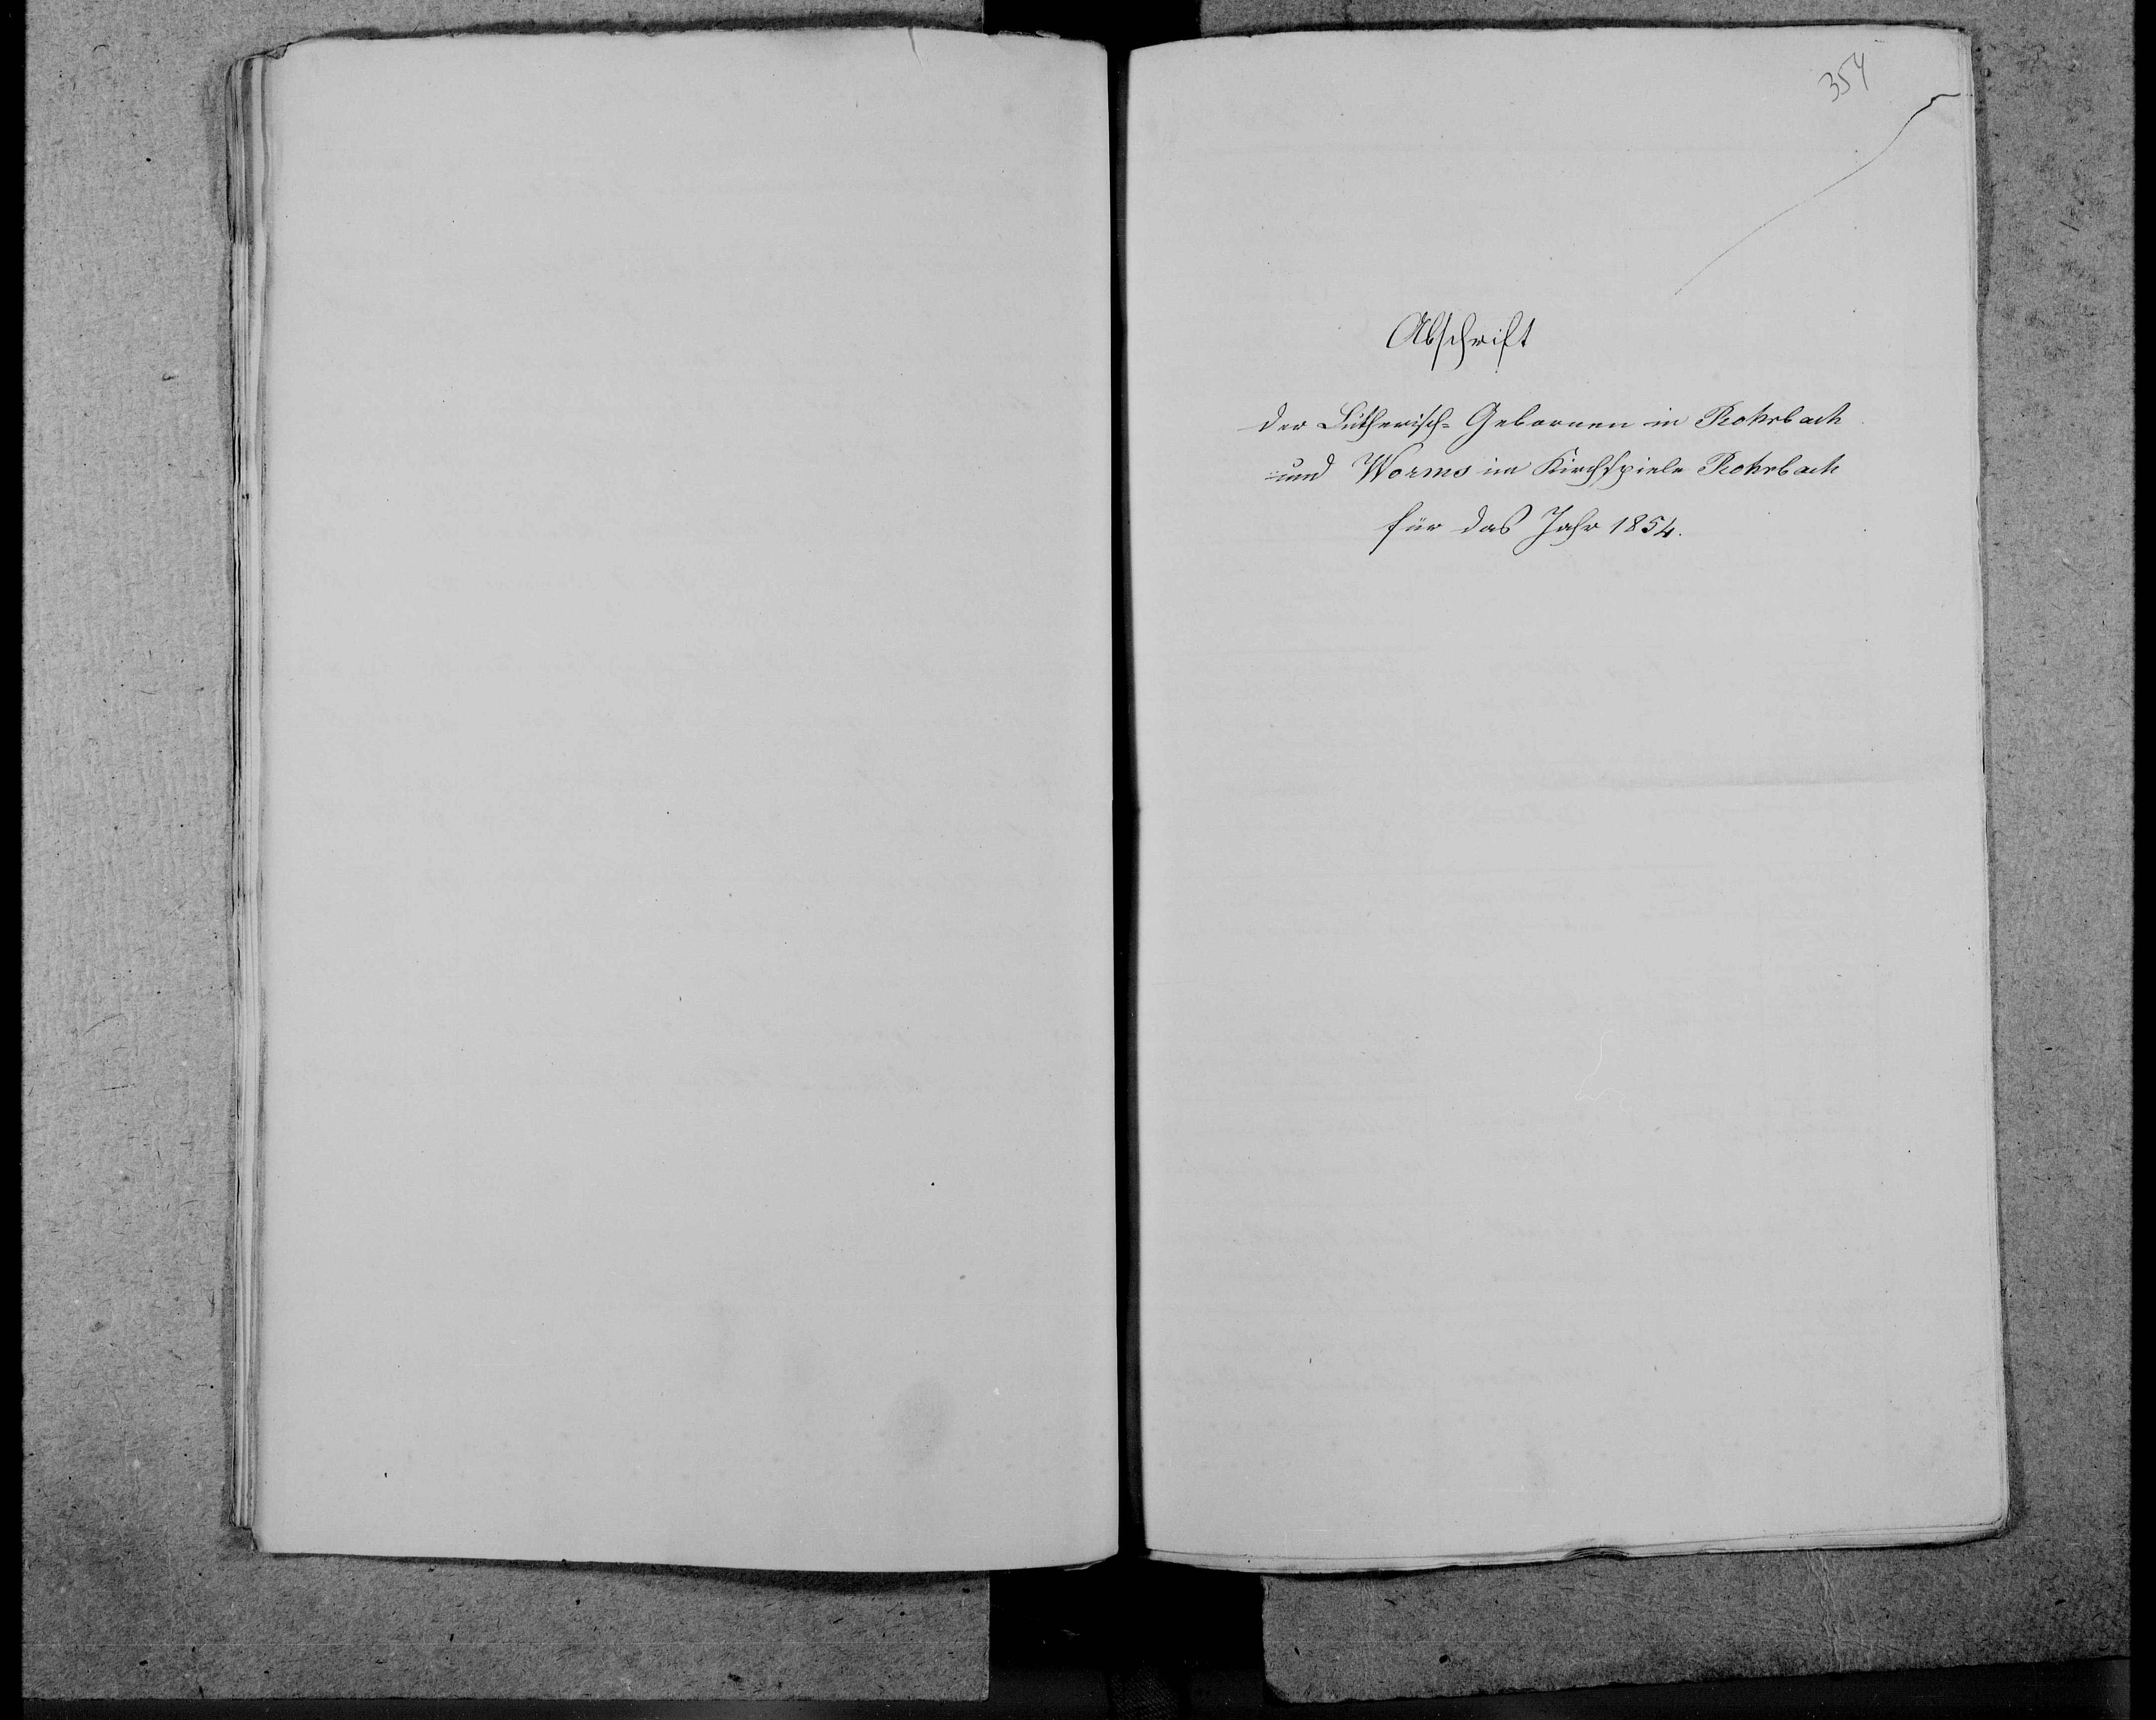 354
Abschrift
der Lutherisch= Gebornen in Rohrbach
und Worms im Kirchspiele Rohrbach
für das Jahr 1854.